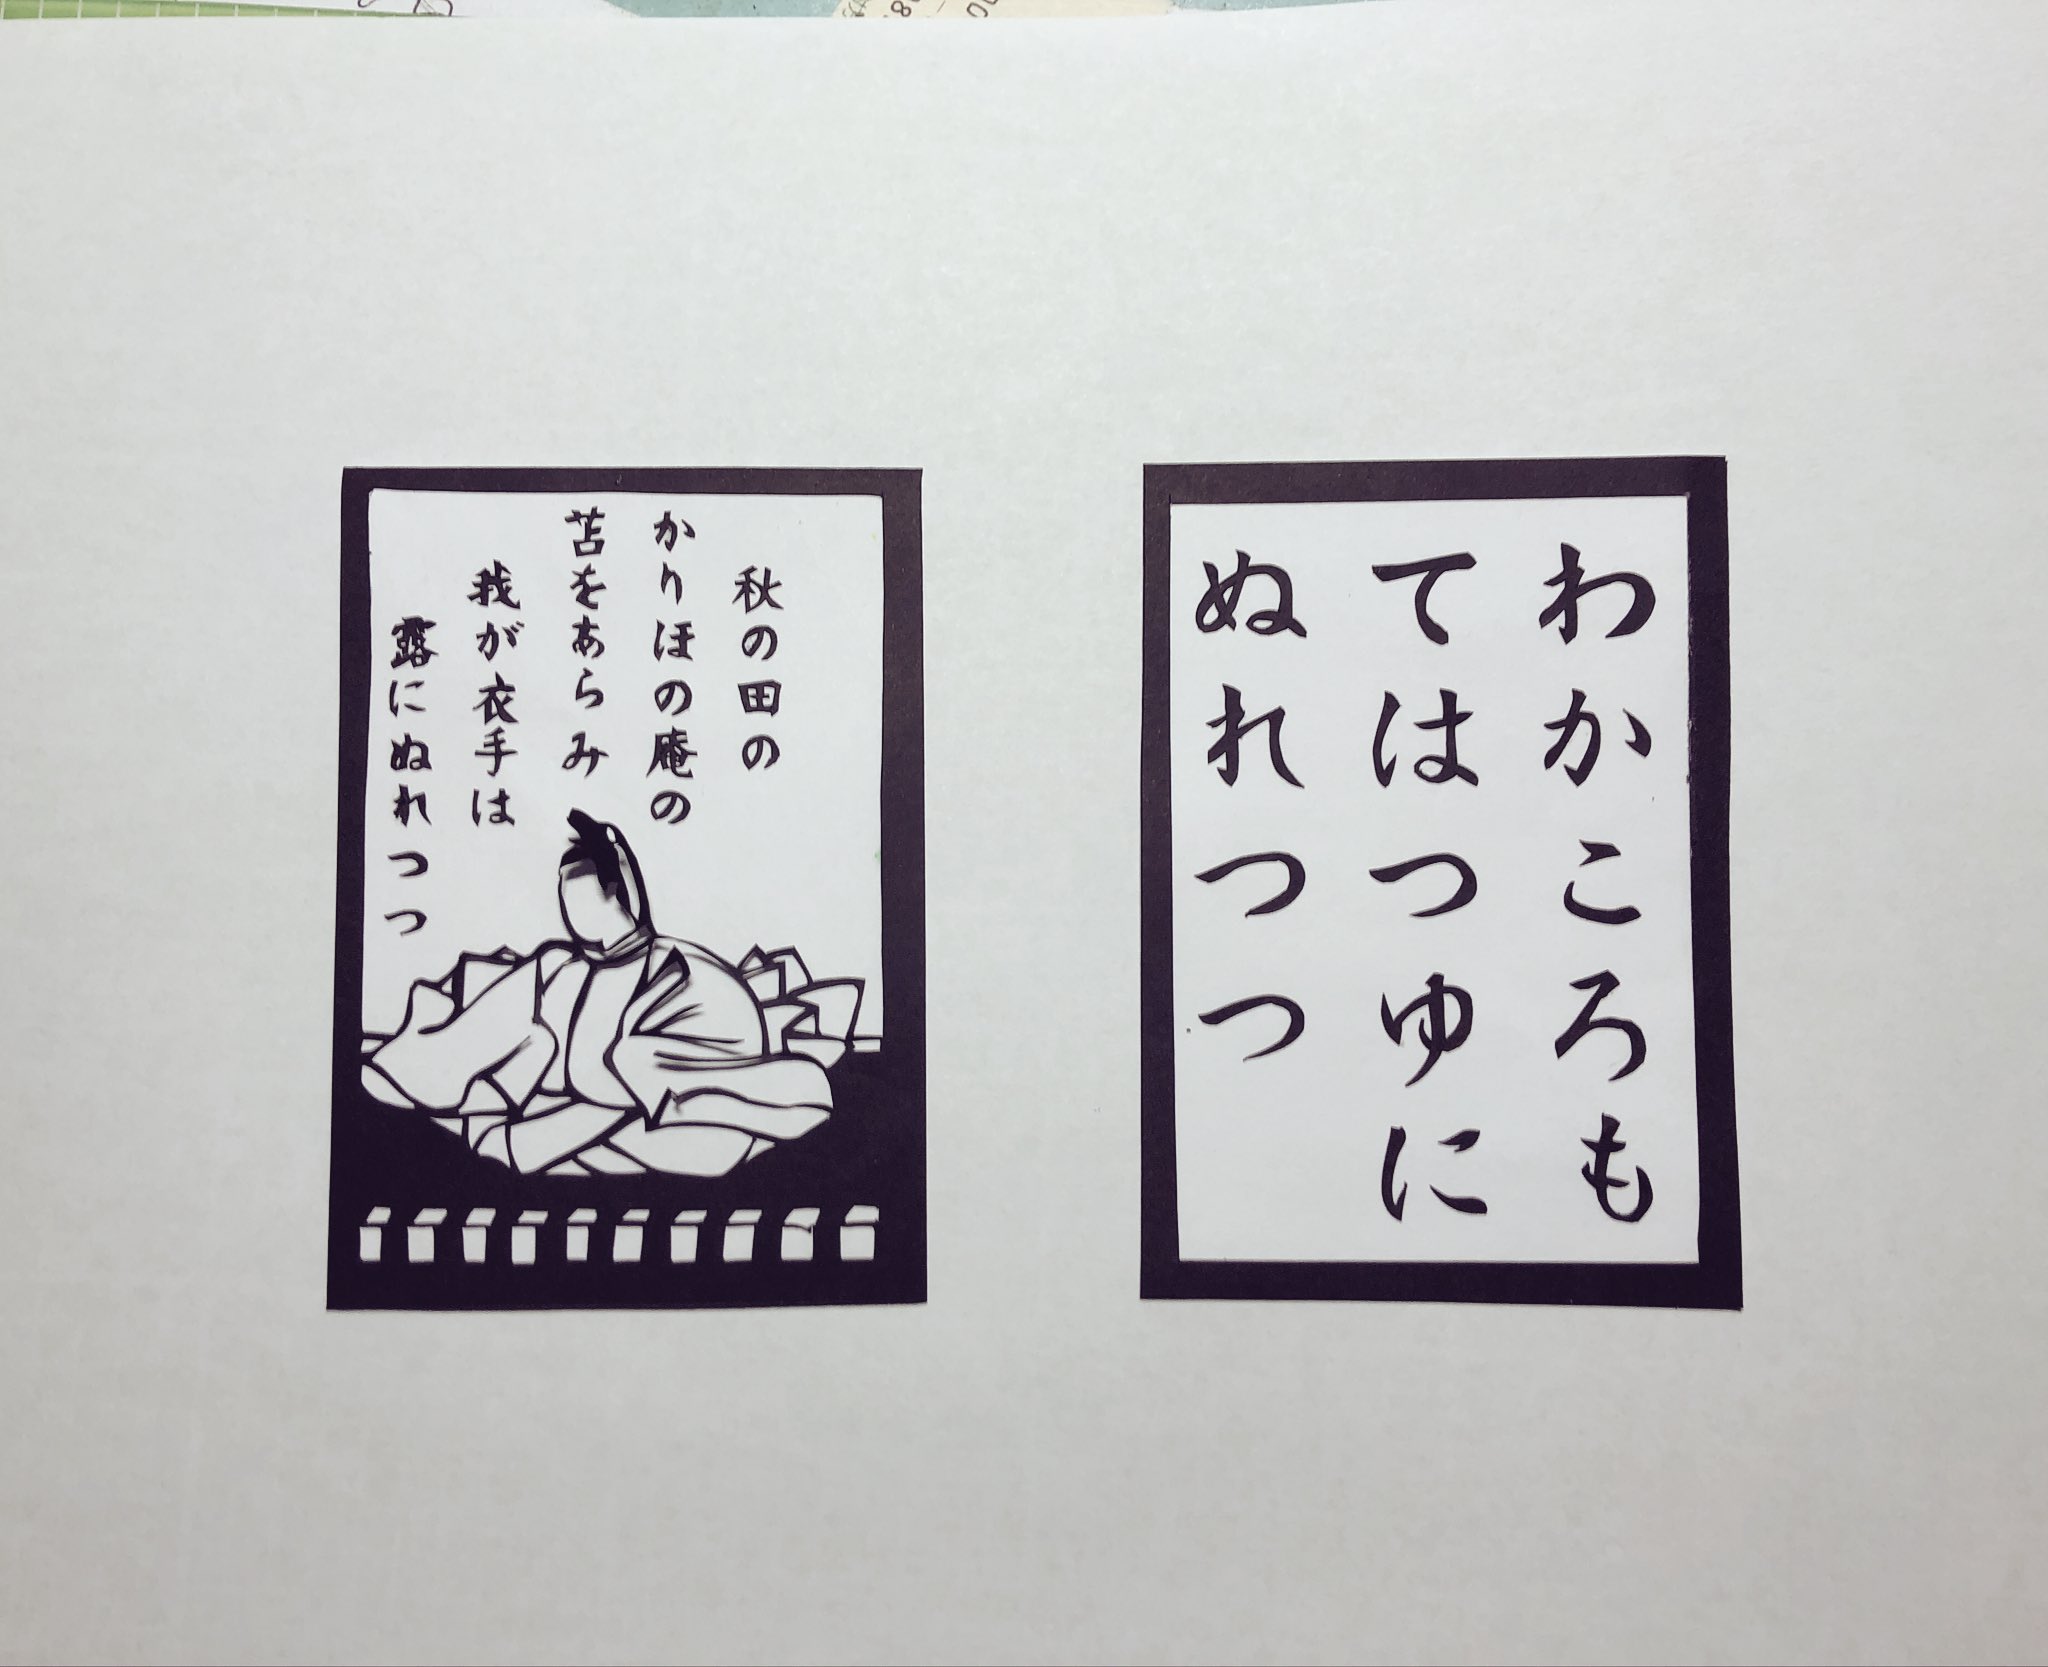 秋の田の
かりほの庵の
苫をあらみ
我が衣手は
露にぬれつつ
わかころも
てはつゆに
ぬれつつ